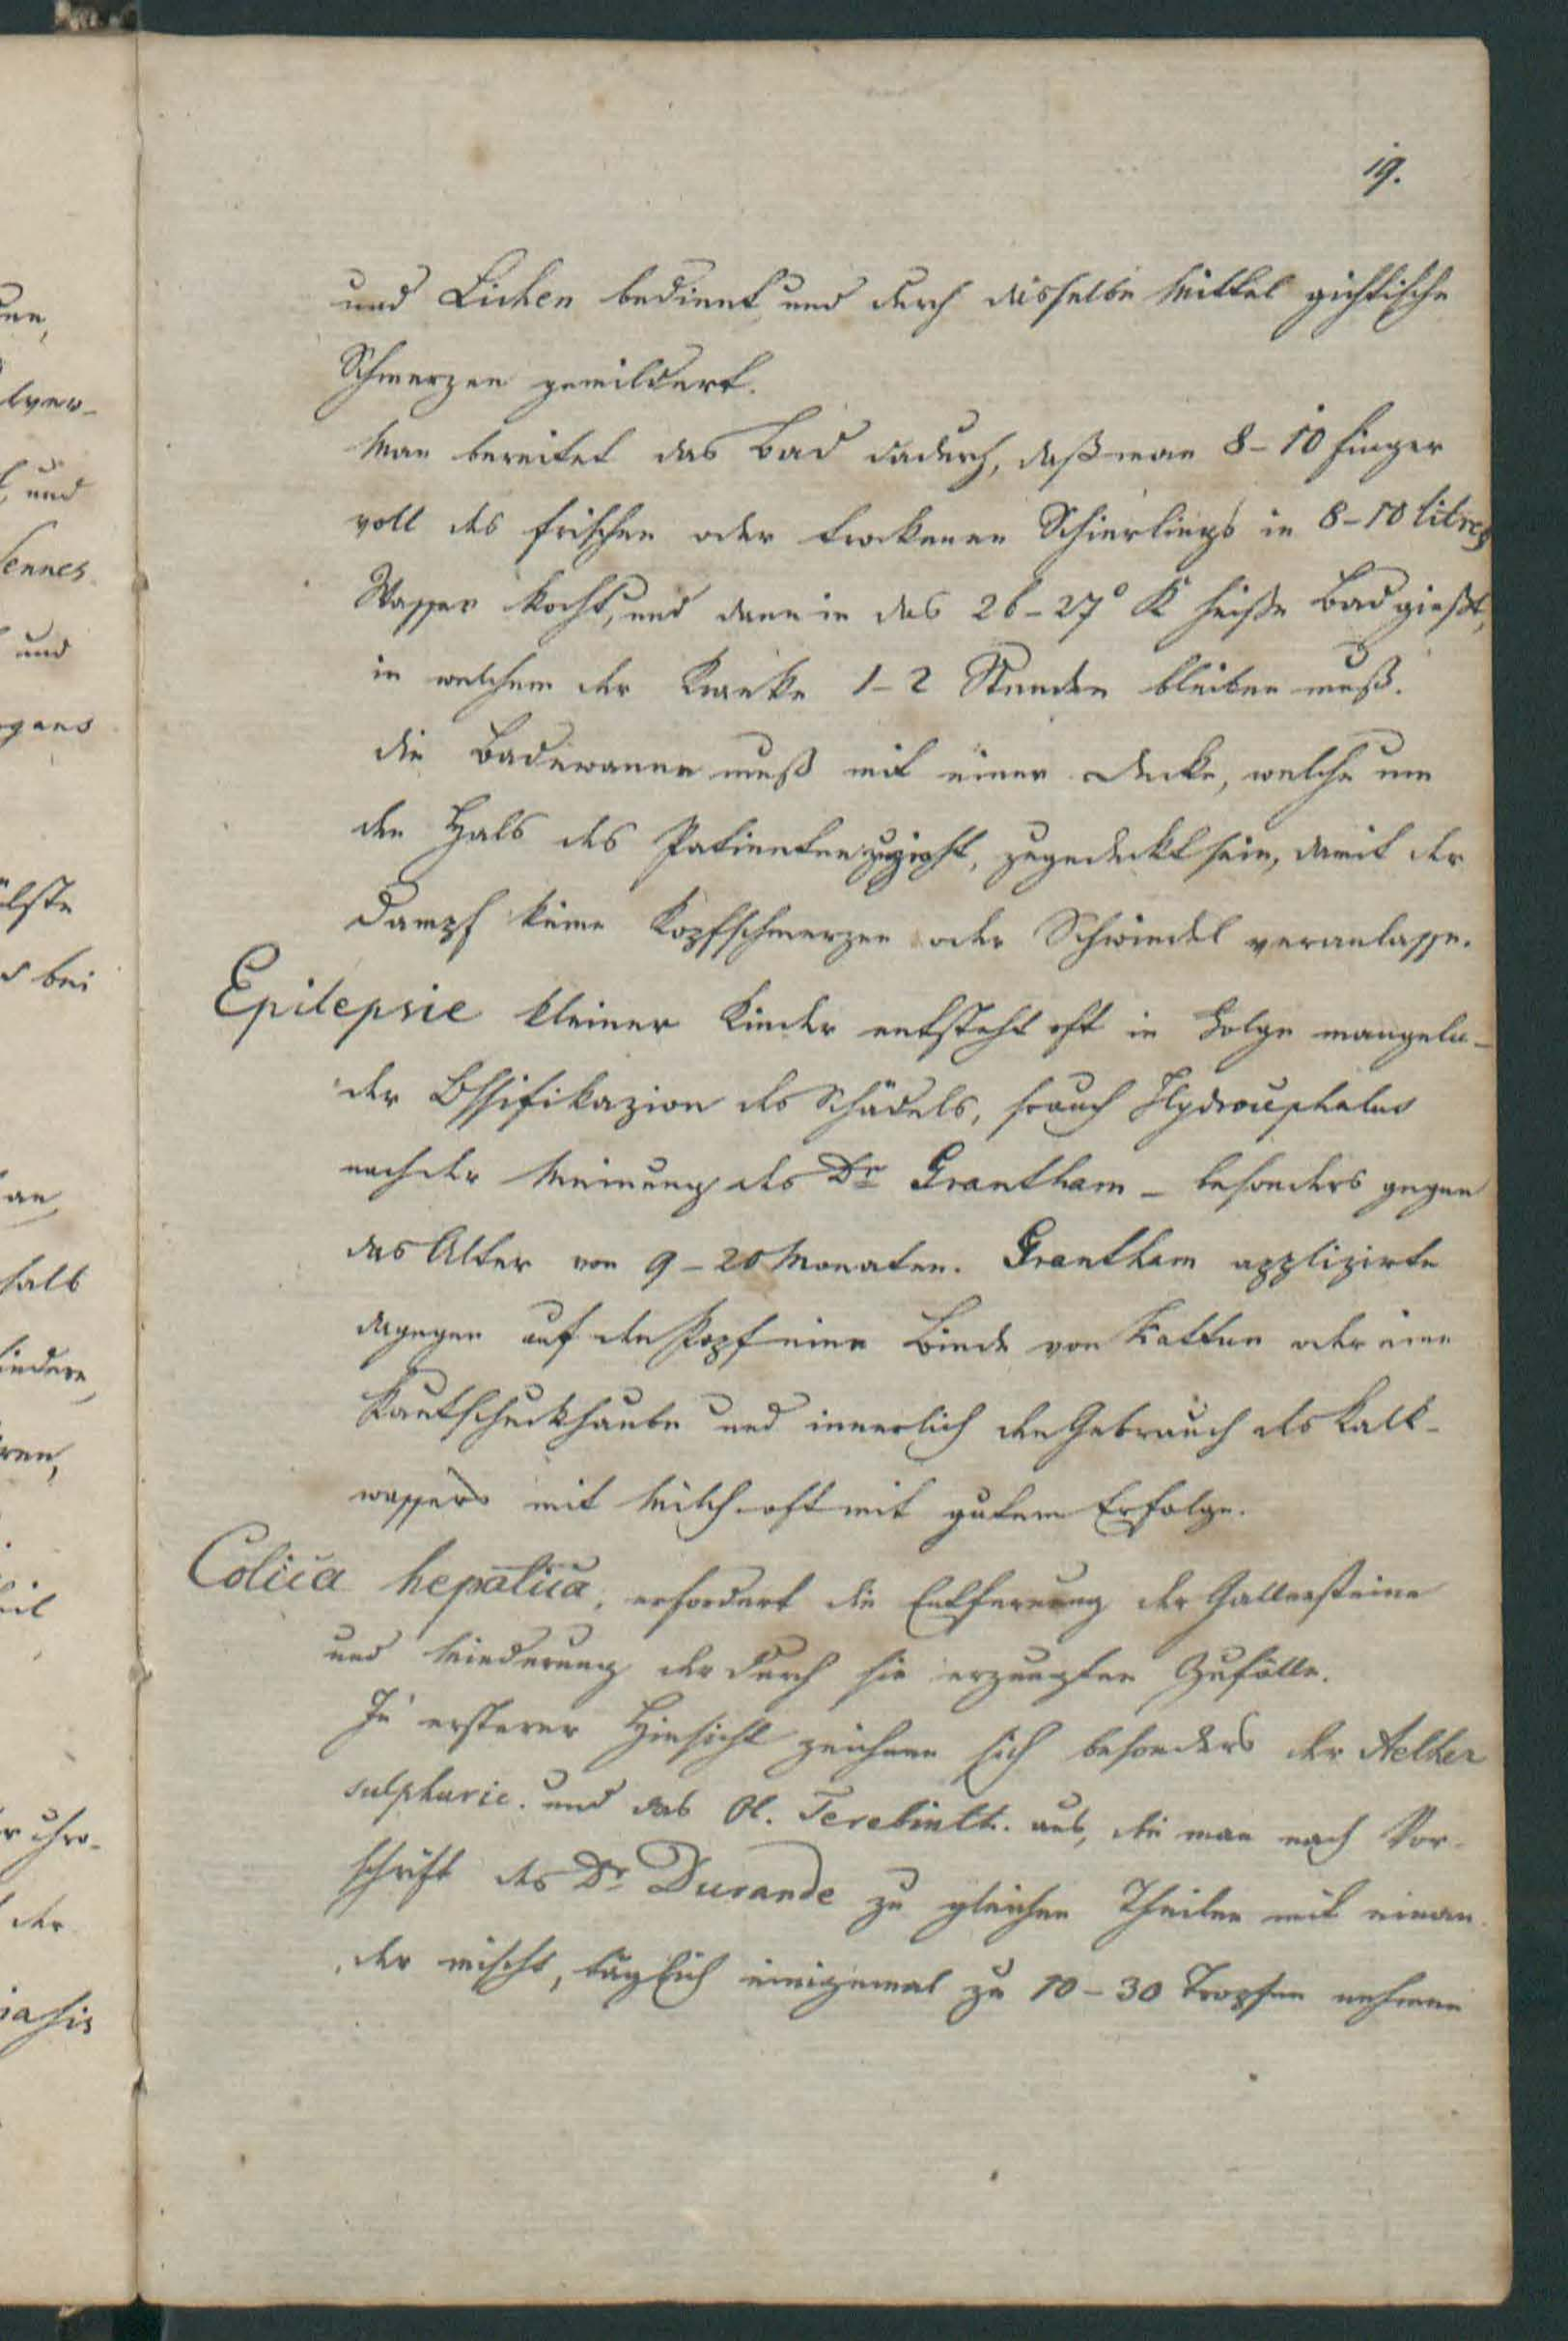 19.
und Lichen bedient und durch dasselbe Mittel gichtische
Schmerzen gemildert.
Man bereitet das Bad dadurch, daß man 8–10 Finger
voll des frischen oder trockenen Schierlings in 8–10 litres
Wasser kocht, und dann in das 26–27° R heiße Bad gießt,
in welchem der Kranke 1–2 Stunden bleiben muß.
die Badewanne muß mit einer Decke, welche um
den Hals des Patienten, zugedeckt sein, damit der
Dampf keine Kopfschmerzen oder Schwindel veranlasse.
Epilepsie kleiner Kinder entsteht oft in Folge mangeln-
der Ossifikazion des Schädels, so auch Hydrocephalus
nach der Meinung des Dr Grantham – besonders gegen
das Alter von 9–20 Monaten. Grantham applizirte
dagegen auf den Kopf eine Binde von Kattun oder eine
Kautschuckhaube und innerlich den Gebrauch des Kalk-
wassers mit Milch oft mit gutem Erfolge.
Colica hepatica, erfordert die Entfernung der Gallensteine
und Minderung der durch sie erzeugten Zufälle.
In ersterer Hinsicht zeichnen sich besonders der Aether
sulphuric. und das Ol. Terebinth. aus, die man nach Vor-
schrift des Dr Durande zu gleichen Theilen mit einan-
der mischt, täglich einigemal zu 10–30 Tropfen nehmen